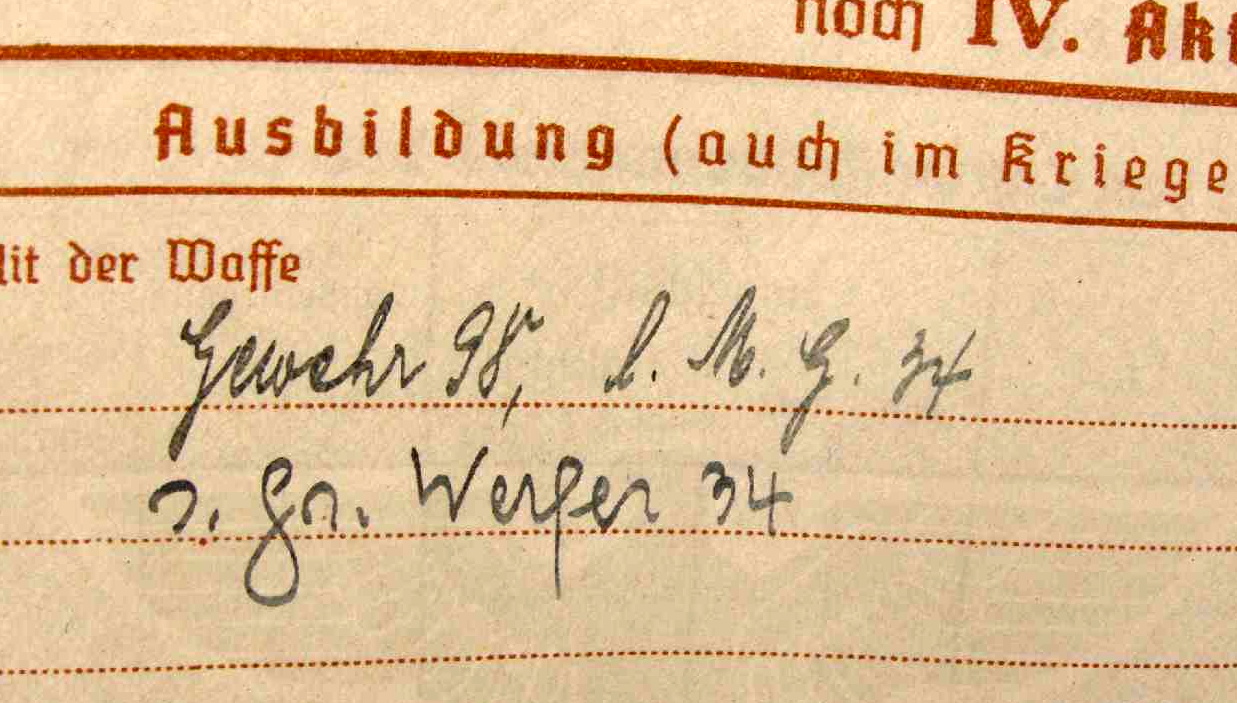 noch IV. Akt
Ausbildung (auch im Kriege
Mit der Waffe
Gewehr 98, l. M. G. 34
s. Gr. Werfer 34